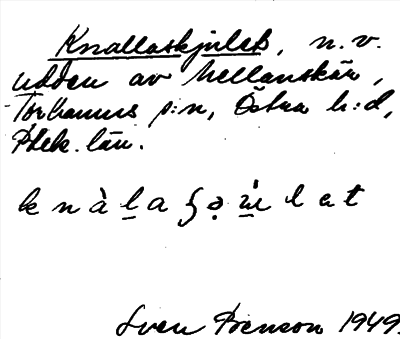 Knallaskjulet, n.v.
udden av Mellanskär,
Torhamns s:n, Östra h:d,
Blek. län.
Sven Benson 1949.